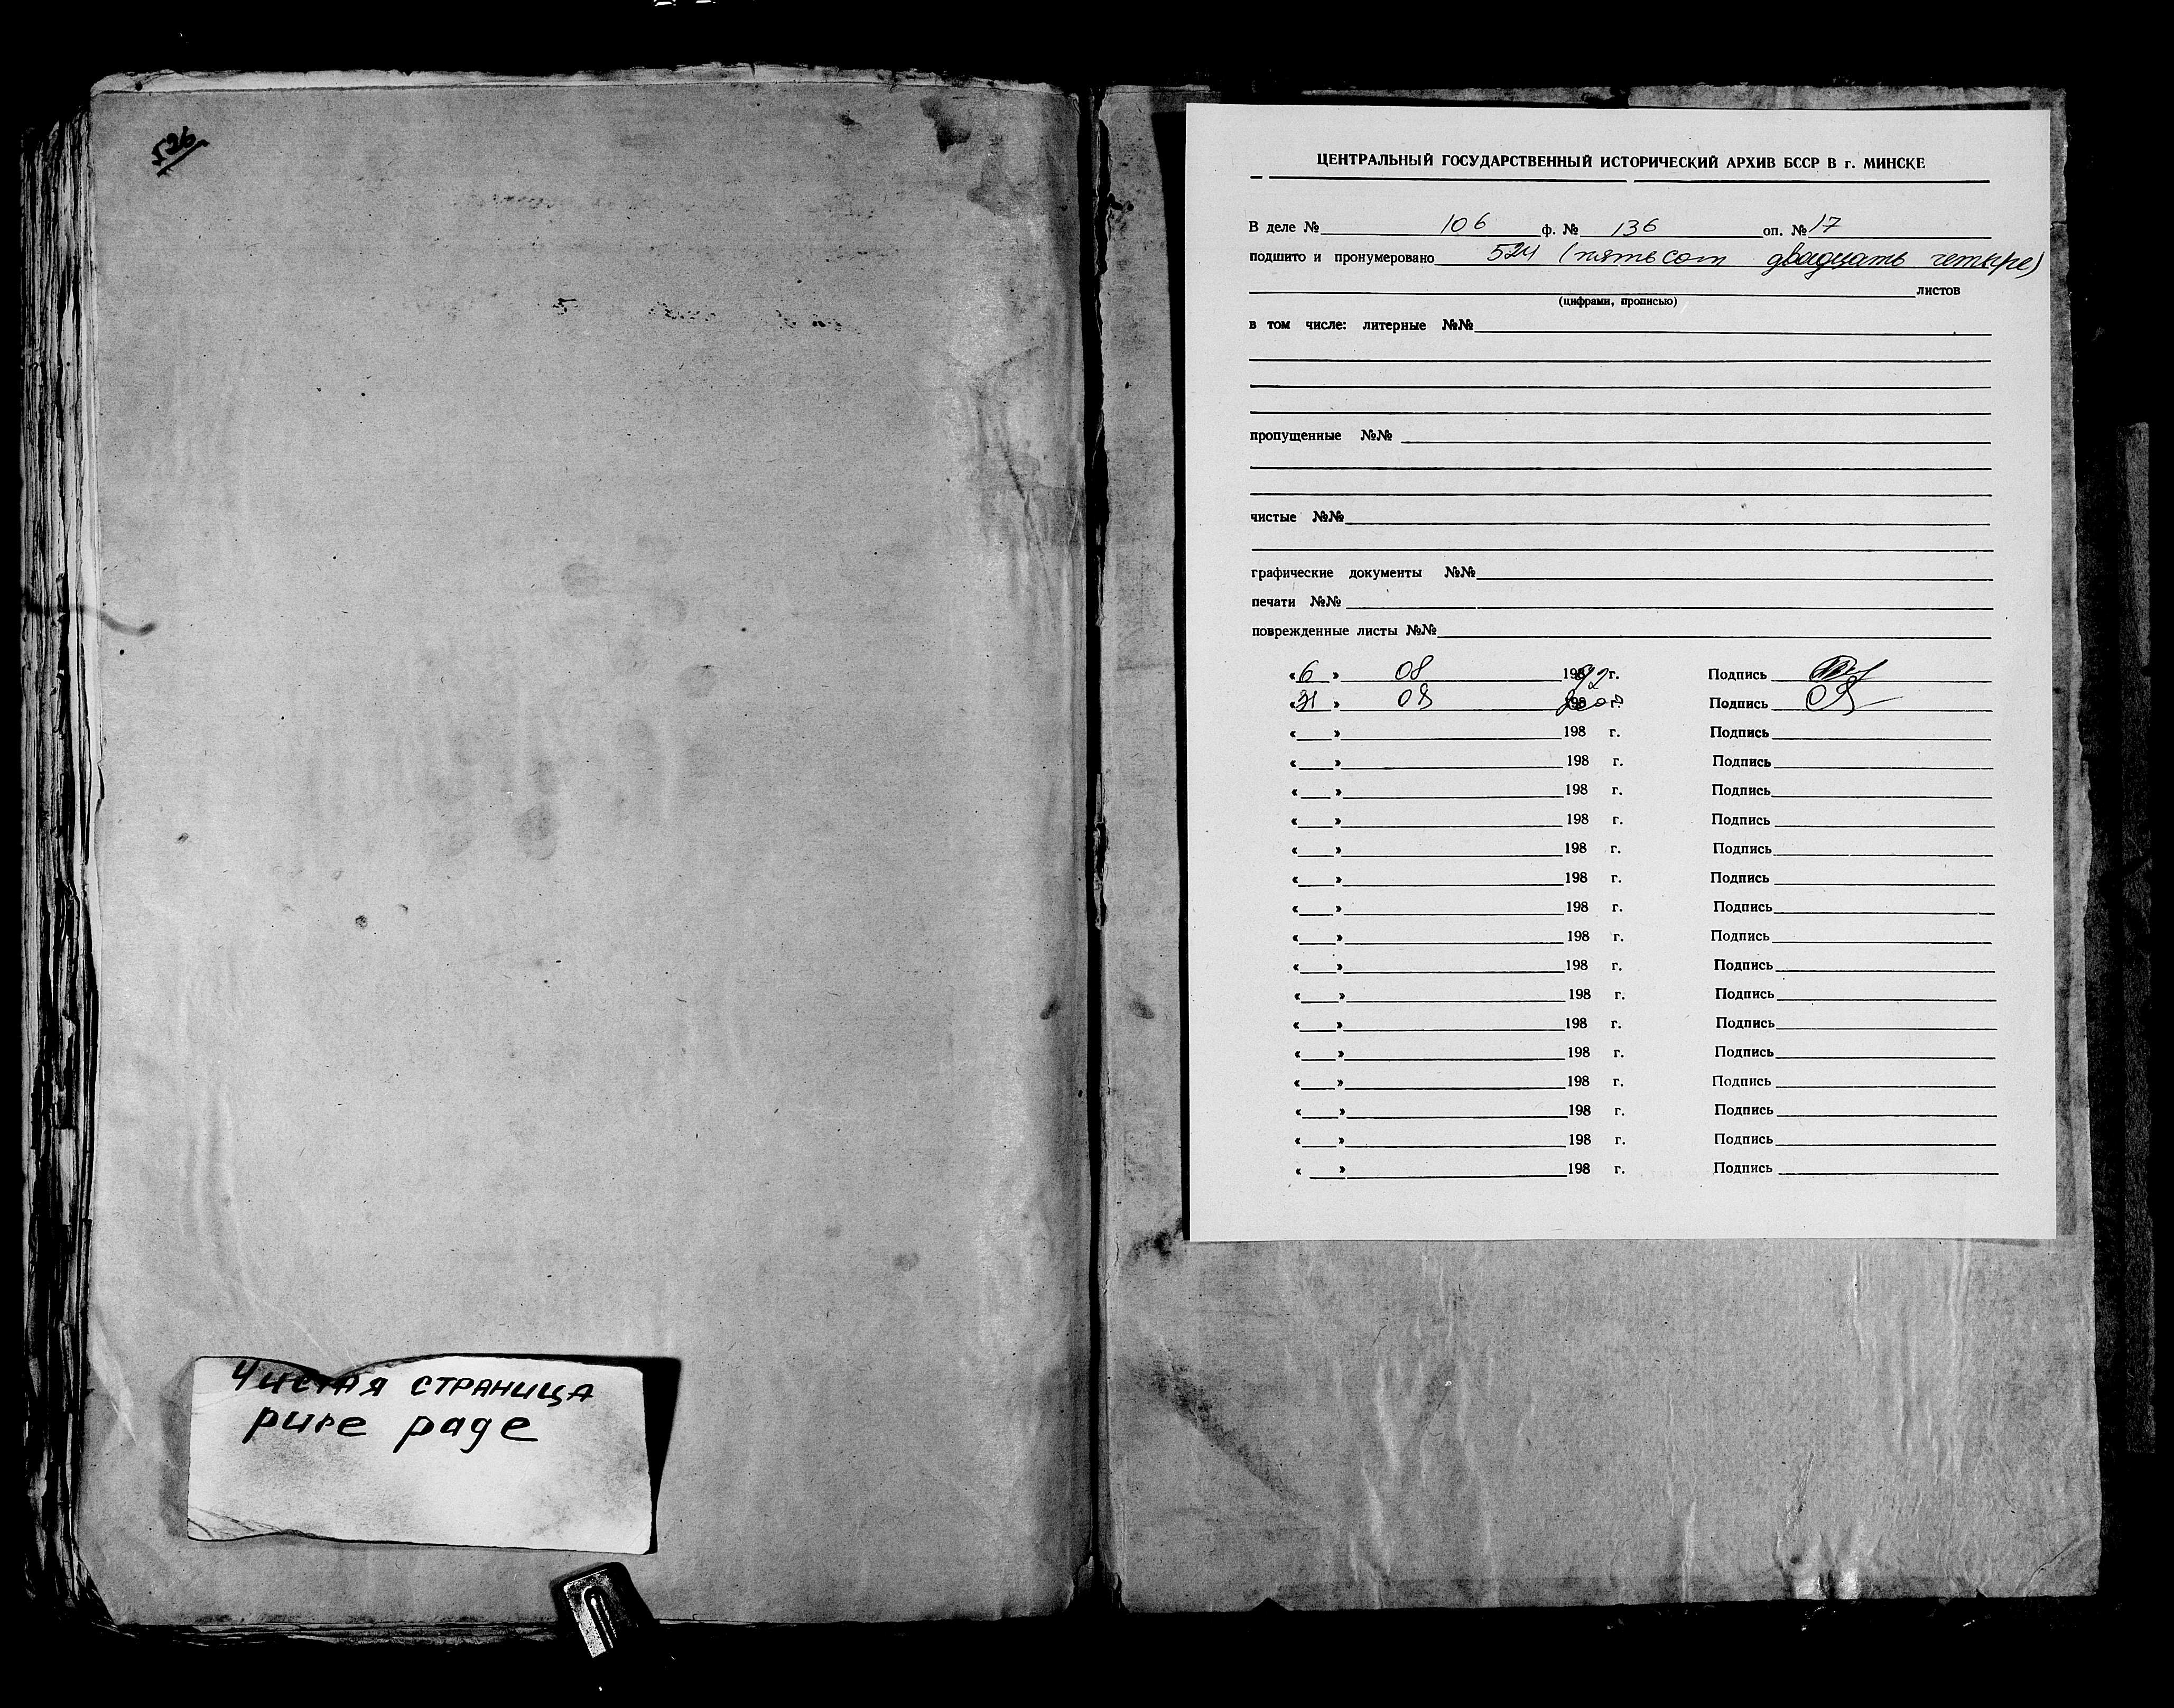 526
Чистая страница
pure page
ЦЕНТРАЛЬНЫЙ ГОСУДАРСТВЕННЫЙ ИСТОРИЧЕСКИЙ АРХИВ БССР В г. МИНСКЕ
В деле № 106 ф. № 136 оп. № 17
подшито и пронумеровано 524 (пятьсот двадцать четыре)
листов
(цифрами, прописью)
в том числе: литерные №№
пропущенные №№
чистые №№
графические документы №№
печати №№
поврежденные листы №№
«6» 08 1992г. Подпись
«31» 03 г. Подпись
« » 198 г. Подпись
« » 198 г. Подпись
« » 198 г. Подпись
« » 198 г. Подпись
« » 198 г. Подпись
« » 198 г. Подпись
« » 198 г. Подпись
« » 198 г. Подпись
« » 198 г. Подпись
« » 198 г. Подпись
« » 198 г. Подпись
« » 198 г. Подпись
« » 198 г. Подпись
« » 198 г. Подпись
« » 198 г. Подпись
« » 198 г. Подпись